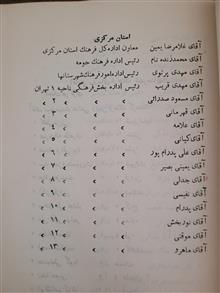 استان مرکزی
آقای غلامرضا یمین معاون اداره کل فرهنگ استان مرکزی
آقای محمد زنده نام رئیس اداره فرهنگ حومه
آقای مهدی پرتوی رئیس اداره امور فرهنگ شهرستانها
آقای مهدی قریب رئیس اداره بخش فرهنگی ناحیه ۱ تهران
آقای مسعود صدرائی » » » ۲ »
آقای قهرمانی » » » ۳ »
آقای علامه » » » ۴ »
آقای کیانی » » » ۵ »
آقای علی پدرام پور » » » ۶ »
آقای یمینی بصیر » » » ۷ »
آقای جدلی » » » ۸ »
آقای نفیسی » » » ۹ »
آقای پدرام » » » ۱۰ »
آقای نوربخش » » » ۱۱ »
آقای موقنی » » » ۱۲ »
آقای ماهرو » » » ۱۳ »